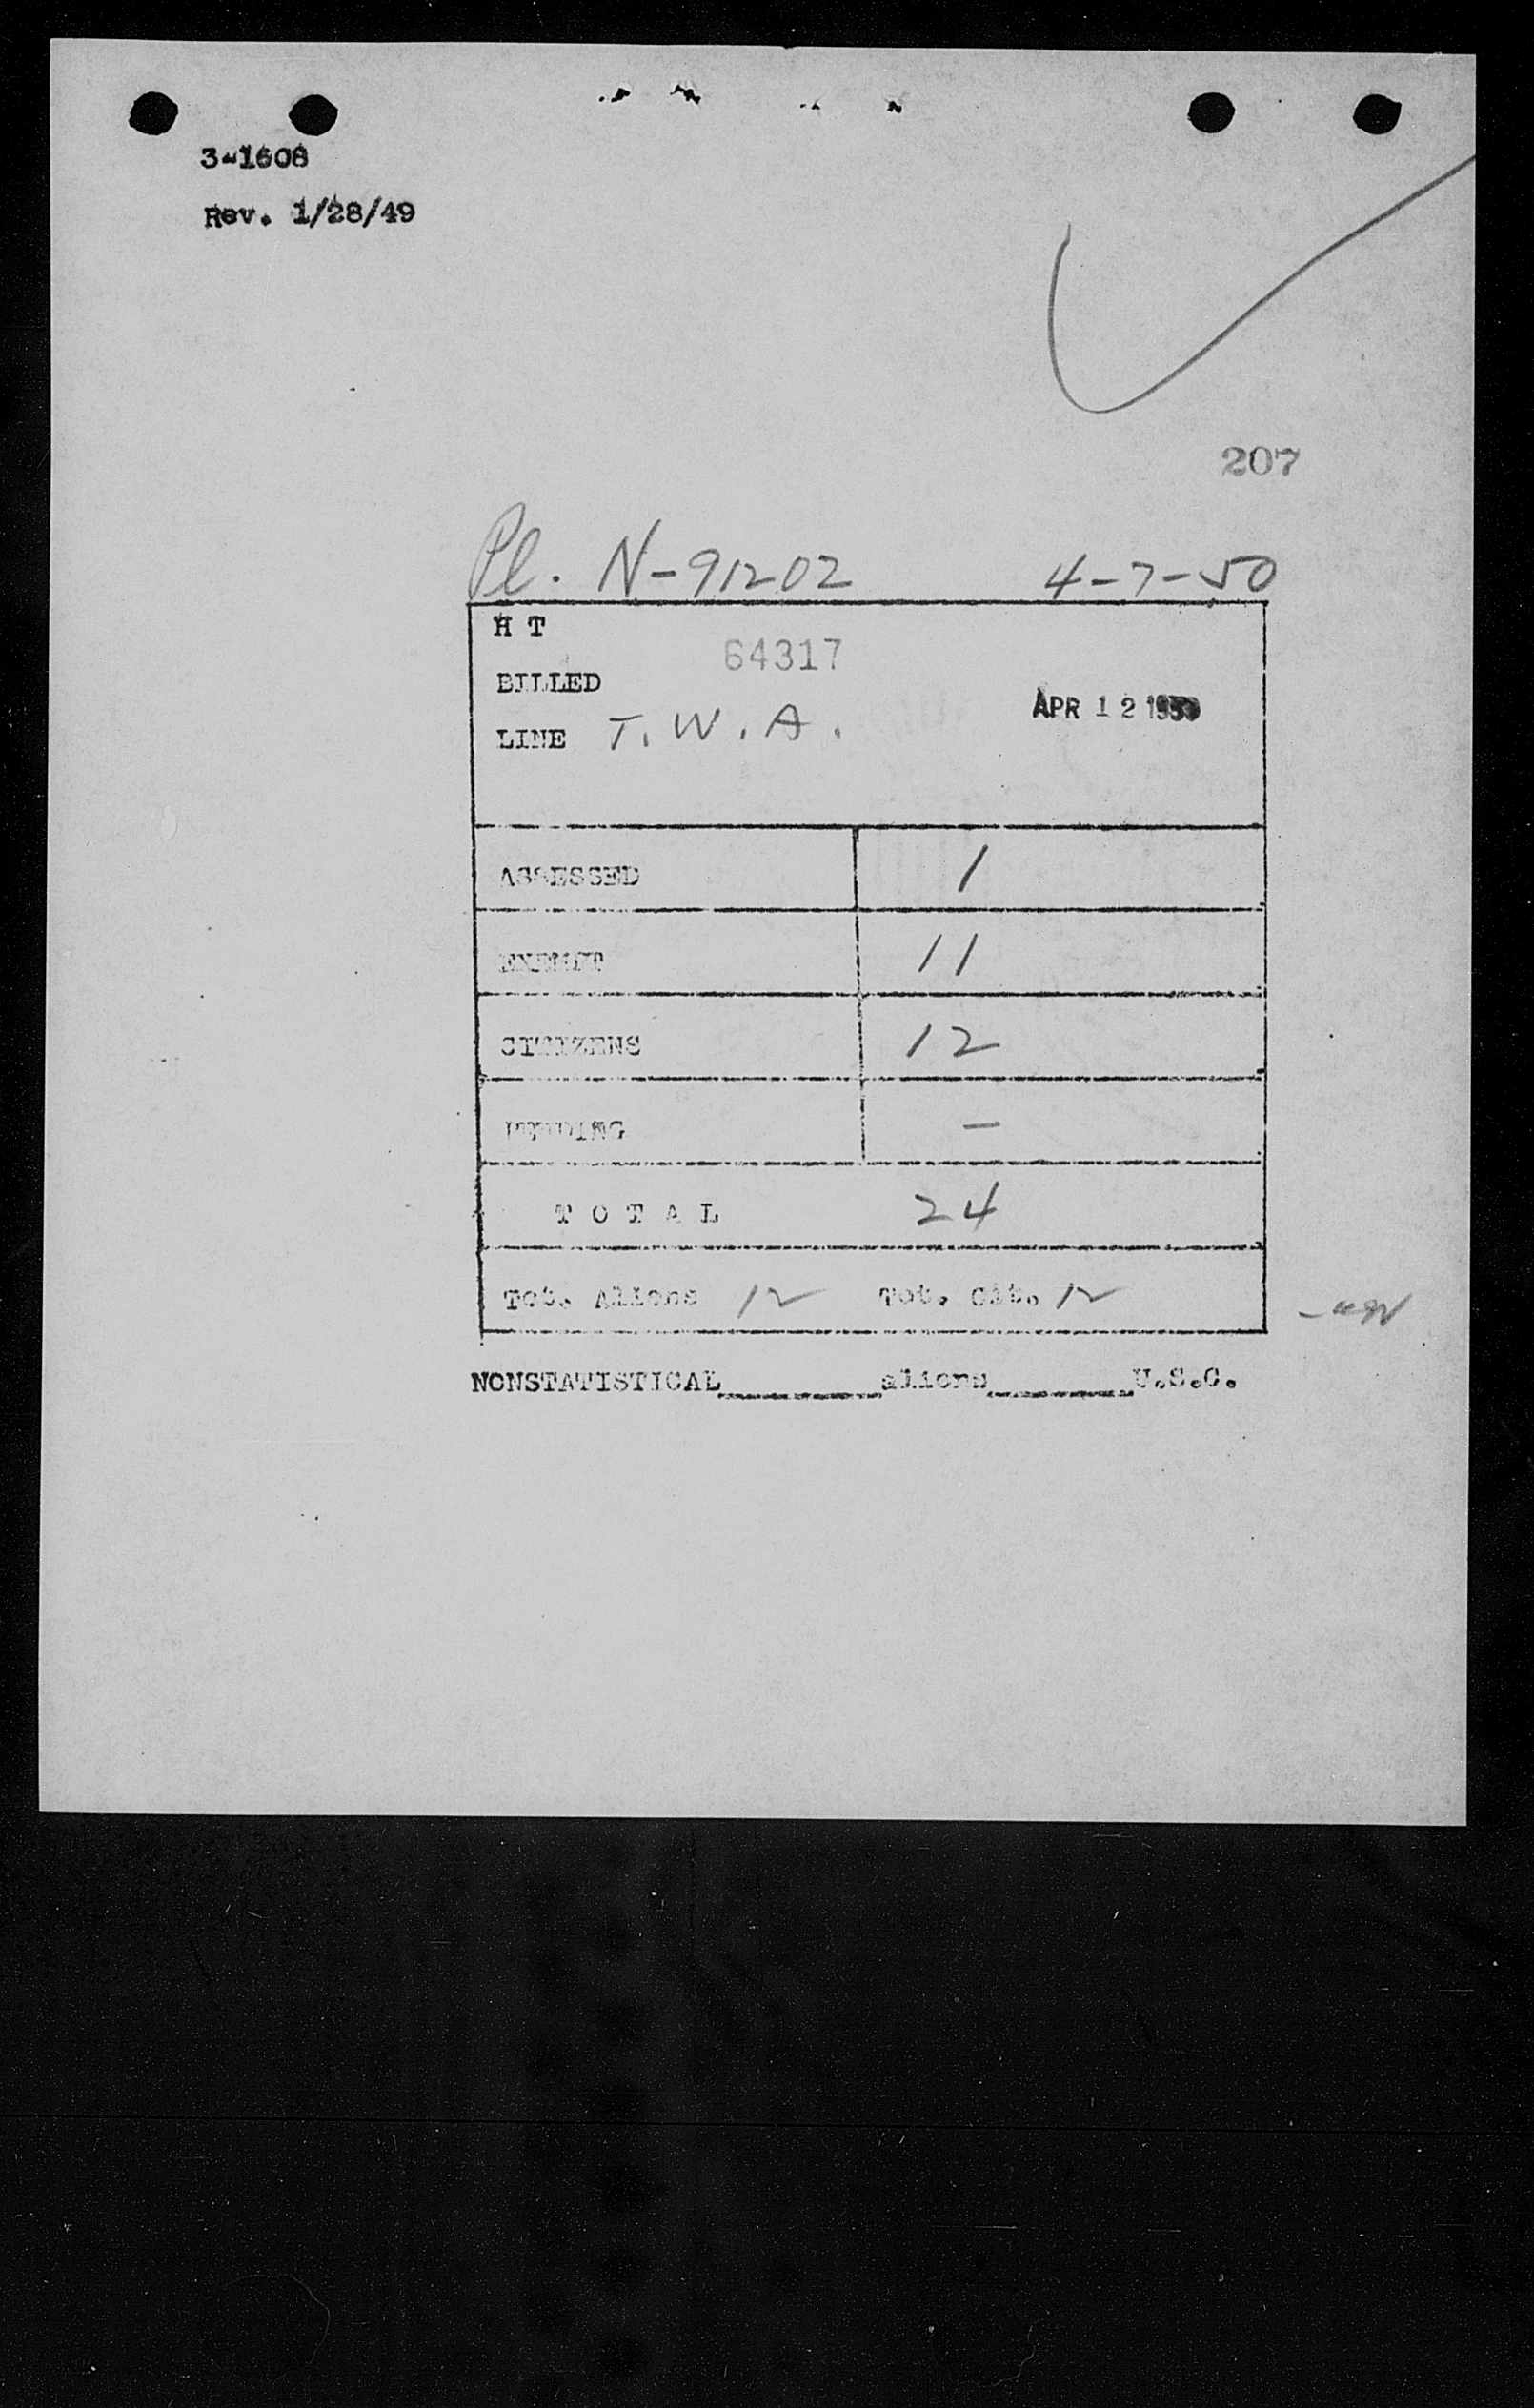 3-1608
Rev. 1/28/49
207
Pl. N-91202 4-7-50
H T
64317
BILLED
APR 12 1950
LINE T. W. A.
ASSESSED 1
EXEMPT 11
CITIZENS 12
PENDING -
T O T A L 24
Tot. Aliens 12 Tot. Cit. 12
NONSTATISTICAL________aliens________U.S.C.